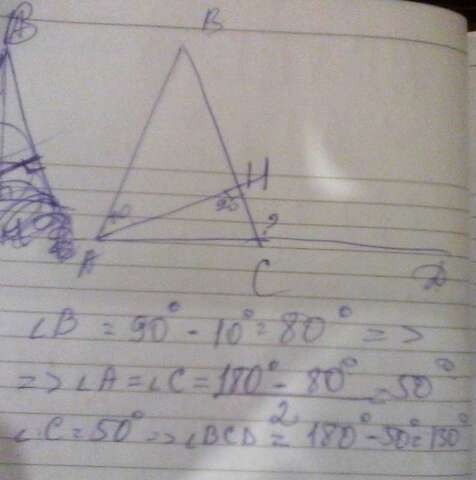 B
B
H
A
C
?
D
∠B = 90° - 10° = 80° =>
=> ∠A = ∠C = (180° - 80°)/2 = 50°
∠C = 50° => ∠BCD = 180° - 50° = 130°